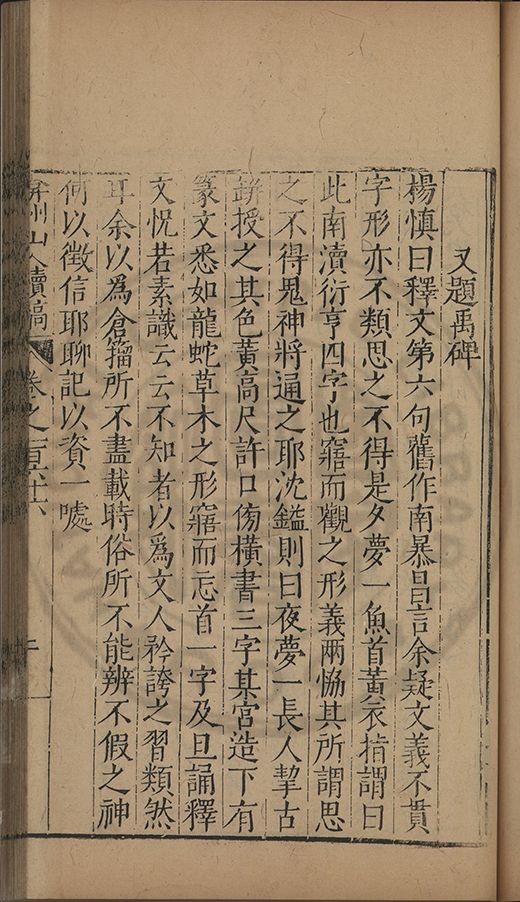 又題禹碑
楊慎曰釋文第六句舊作南暴昌言余疑文義不貫
字形亦不類思之不得是夕夢一魚首黃衣揖謂曰
此南瀆衍亨四字也寤而觀之形義兩恊其所謂思
之不得鬼神將通之耶沈鎰則曰夜夢一長人挈古
缾授之其色黃高尺許口傍橫書三字某宮造下有
篆文悉如龍蛇草木之形寤而忘首一字及旦誦釋
文怳若素識云云不知者以爲文人矜誇之習類然
耳余以爲倉籀所不盡載時俗所不能辨不假之神
何以徵信耶聊記以資一噱
弇州山人續稿 卷之一百六十六